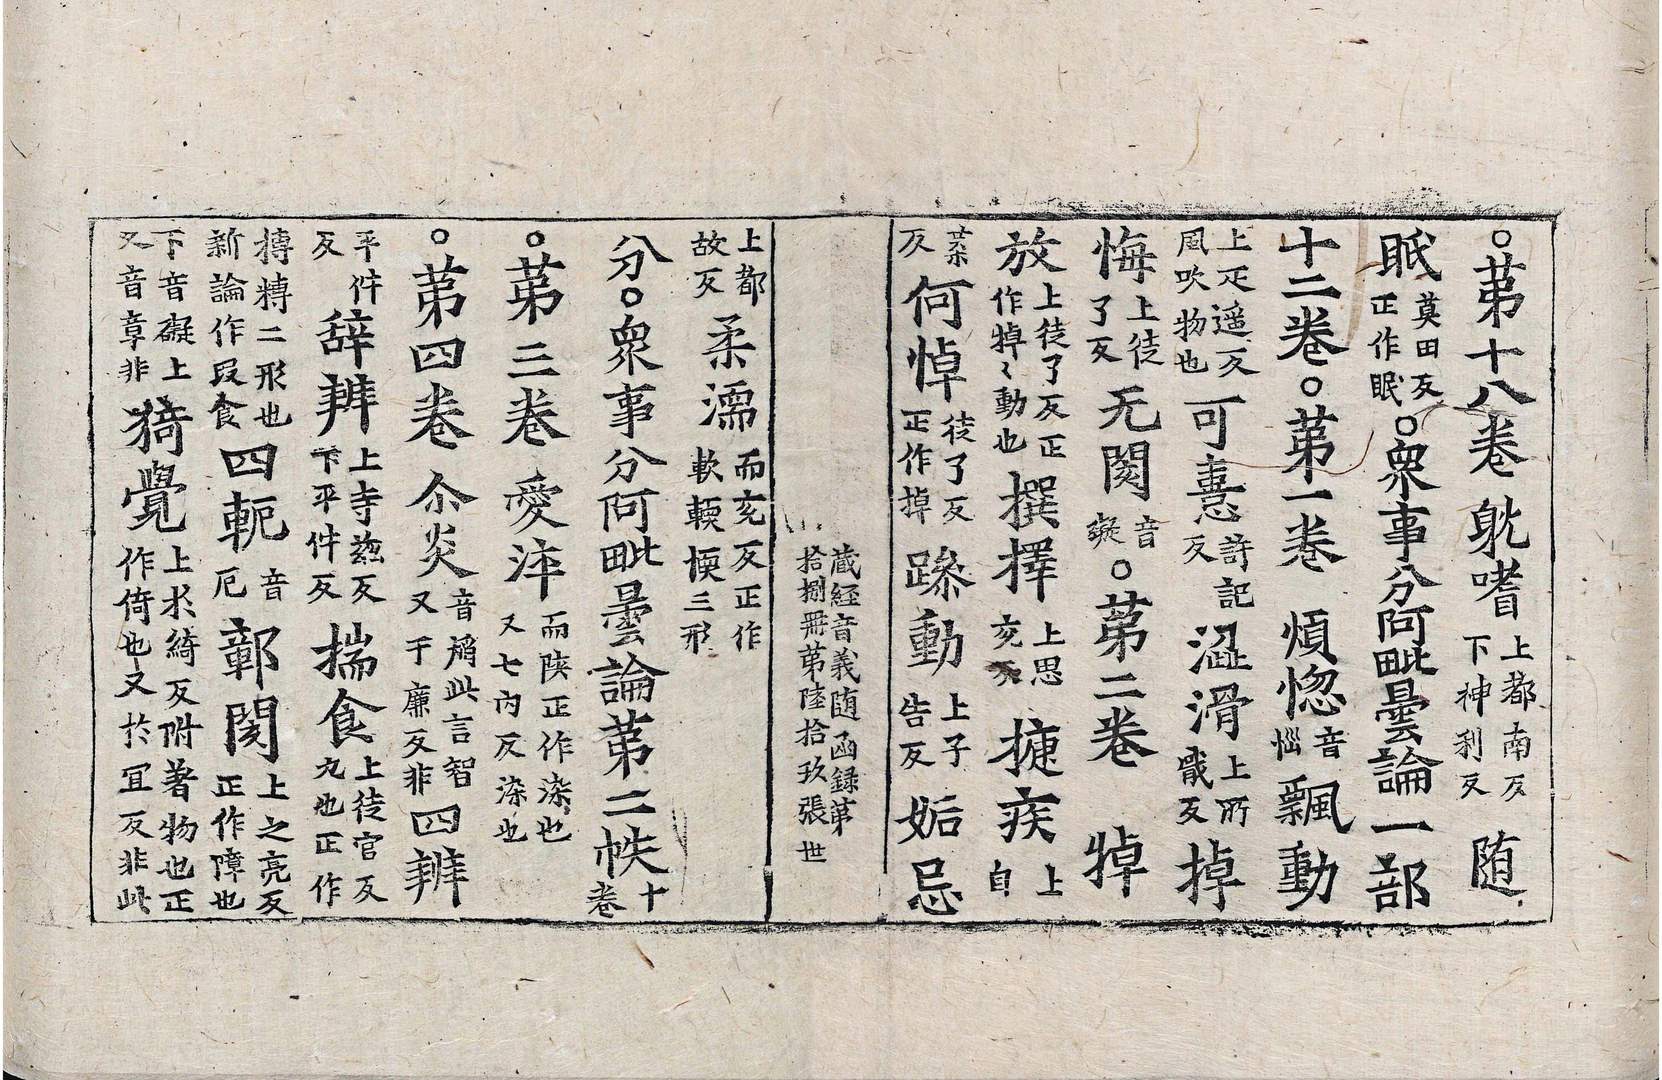 ○苐十八卷 躭嗜上都南反下神利反 随
眠莫田反正作眠○衆事分阿毗曇論一部
十二卷○苐一卷 煩惚音惱飄動
上疋遥反風吹物也可憙許記反澁滑上所戢反掉
悔上徒了反无閡音礙○苐二卷 掉
放上徒了反正作掉〻動也撰擇上思亥反㨗疾上自
葉反何悼徒了反正作掉躁動上子告反妬忌
藏經音義随函錄第
拾捌冊苐陸拾玖張 世
上都故反柔濡而兖反正作軟輭㮏三形
分○衆事分阿毗曇論苐二帙十卷
○苐三卷 愛沣而陝正作染也又七內反染也
○苐四卷 尒炎音焔此言智又于廉反非四辨
平件反辞辨上寺茲反下平件反揣食上徒官反丸也正作
摶䊜二形也新論作段食四軛音厄鄣閡上之亮反正作障也
下音礙上又音章非猗覺上求綺反附著物也正作倚也又於冝反非此